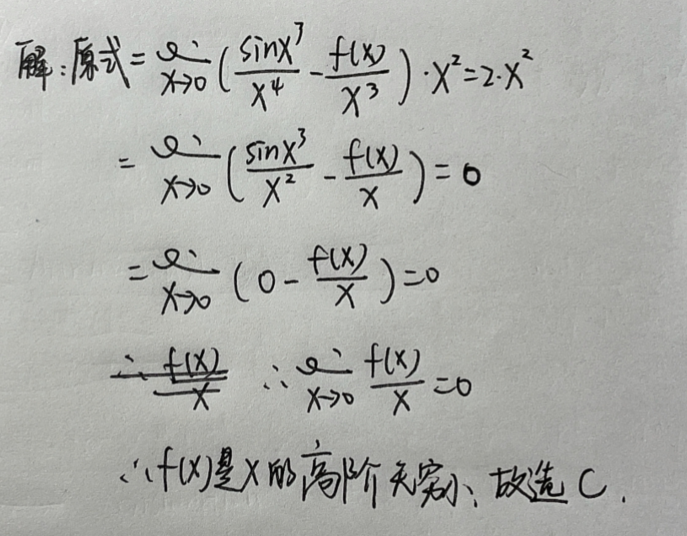 解:原式=lim x→0 (sinx³/x⁴ - f(x)/x³)·x²=2·x²
=lim x→0 (sinx³/x² - f(x)/x)=0
=lim x→0 (0 - f(x)/x)=0
∴ f(x)/x ∴ lim x→0 f(x)/x=0
∴f(x)是x的高阶无穷小、故选C.